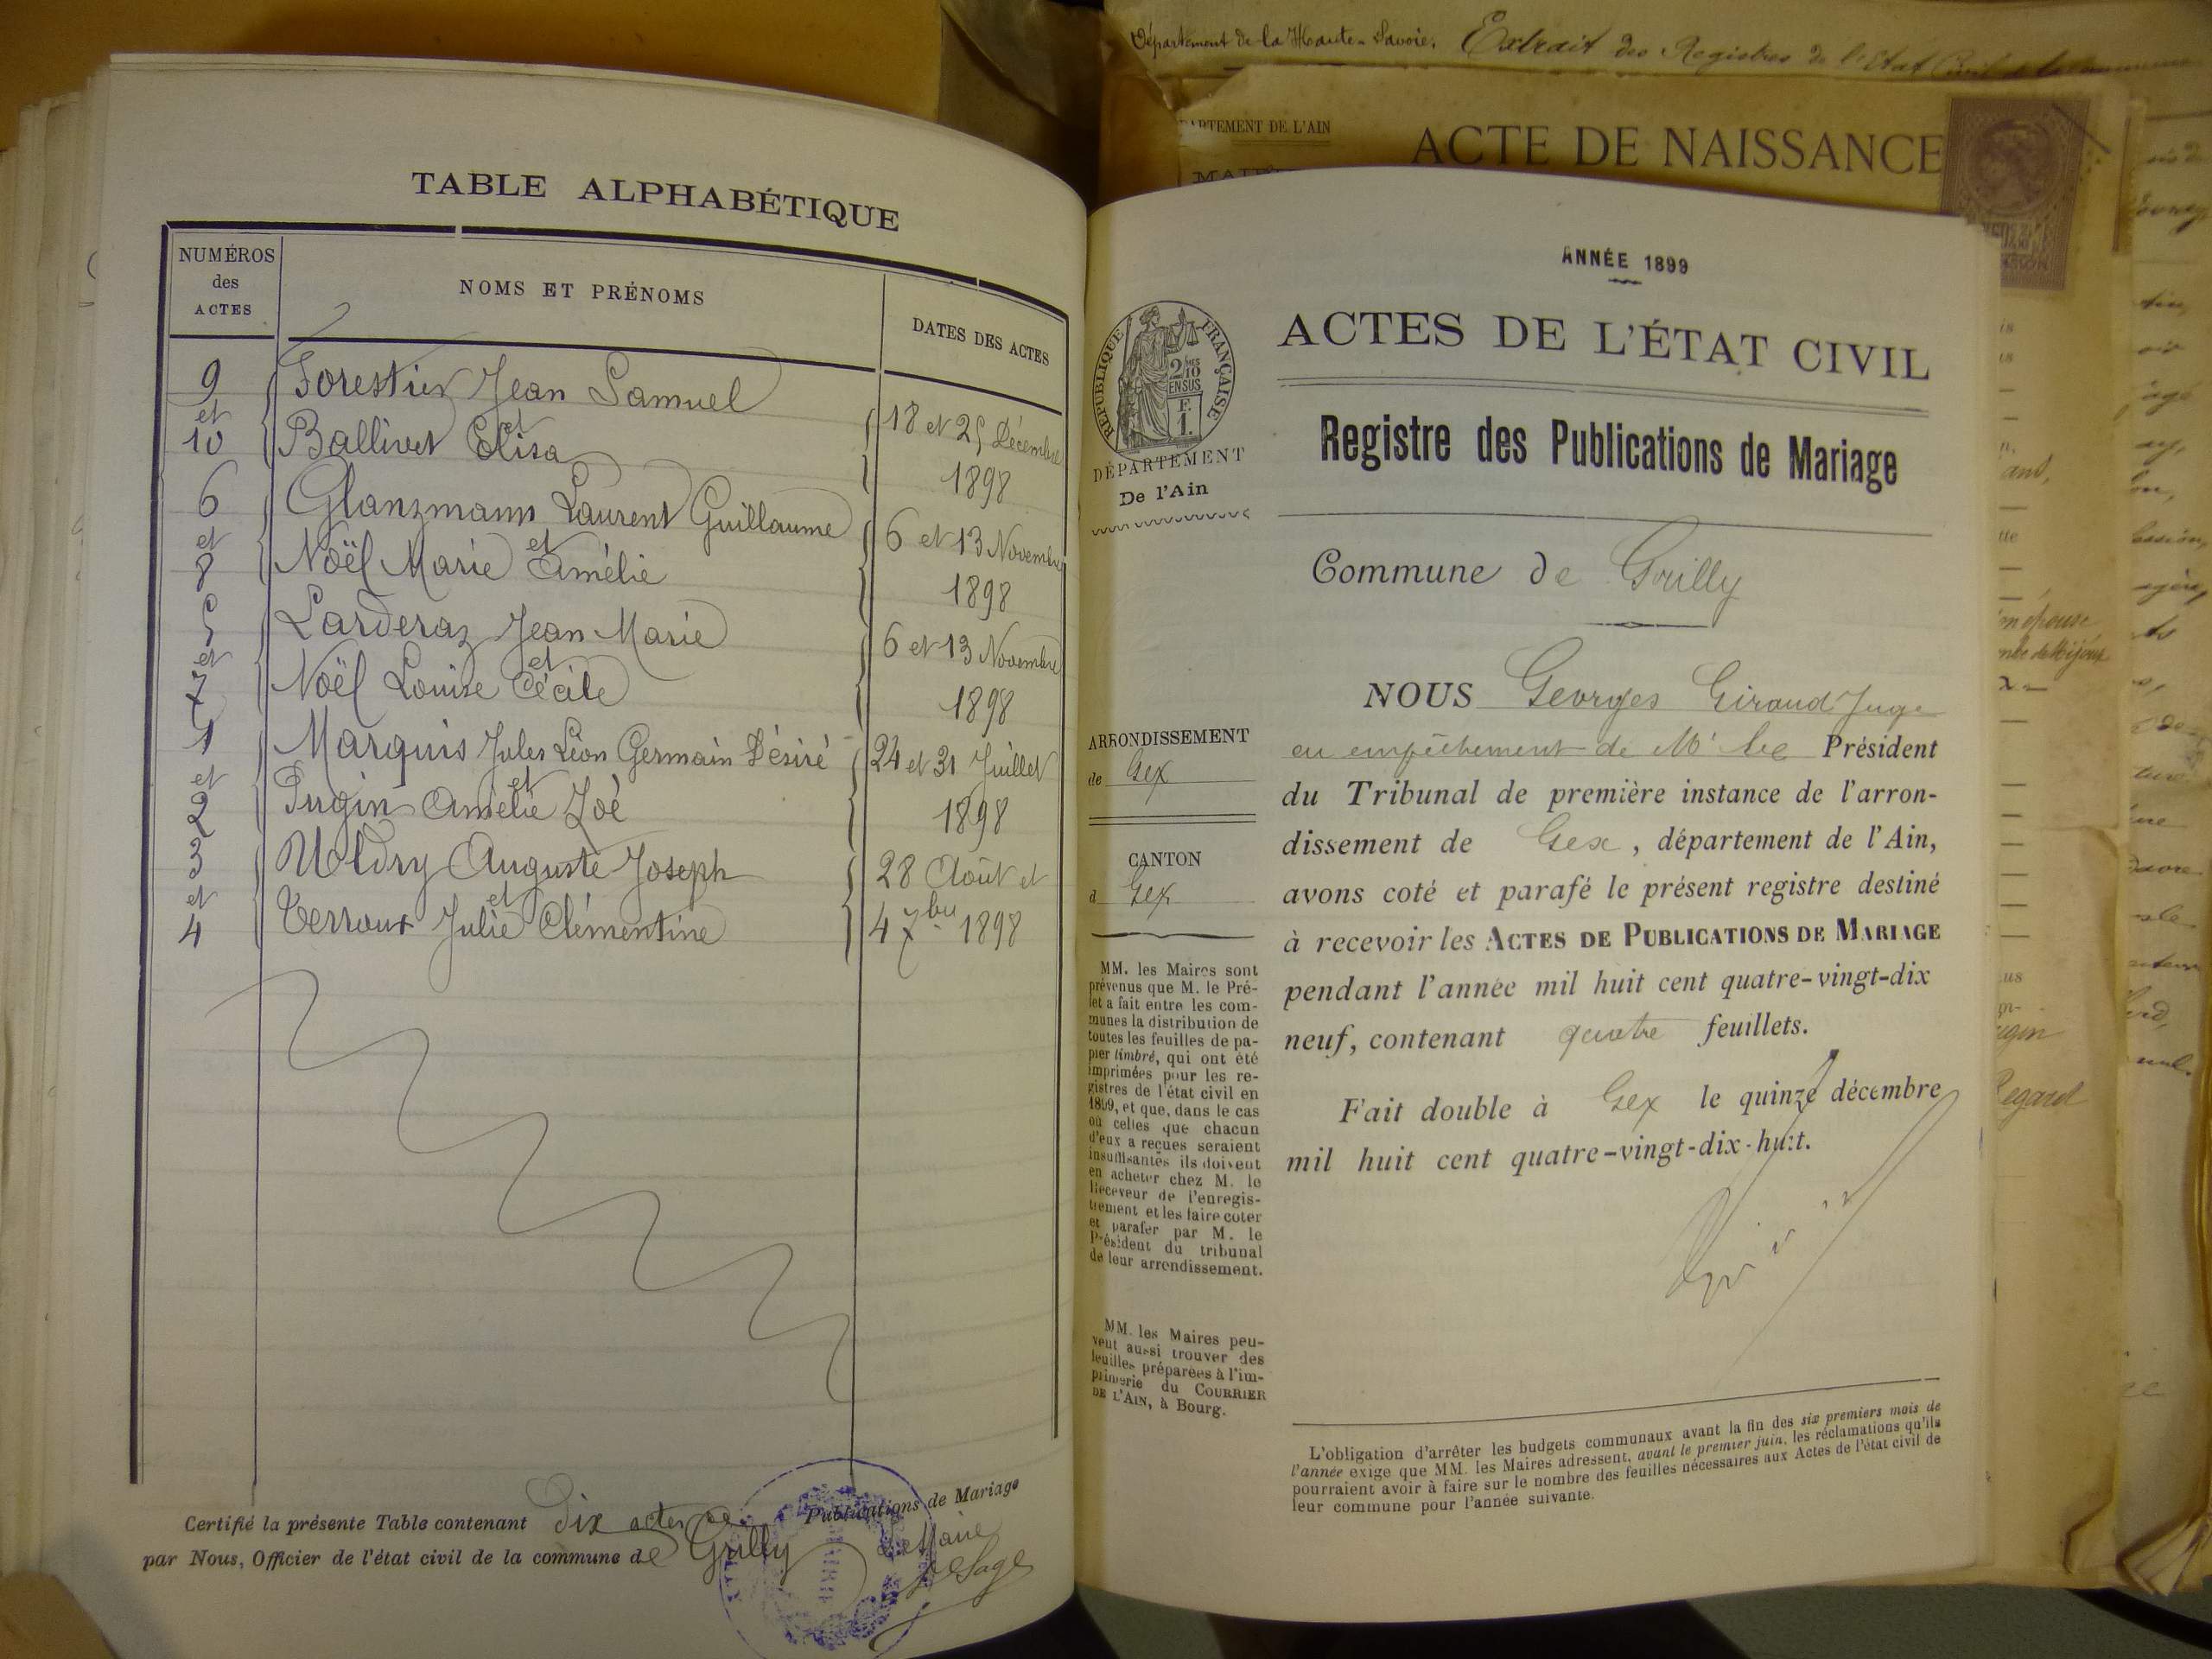 TABLE ALPHABÉTIQUE
NUMÉROS
des
ACTES
NOMS ET PRÉNOMS
DATES DES ACTES
9
Forestier Jean Samuel
et
et
18 et 25 Décembre
10
Ballivet Elisa
1898
6
Glanzmann Laurent Guillaume
et
et
6 et 13 Novembre
8
Noël Marie Amélie
1898
5
Larderaz Jean Marie
et
et
6 et 13 Novembre
7
Noël Louise Cécile
1898
1
Marquis Jules Léon Germain Désiré
24 et 31 Juillet
et
et
2
Pugin Amélie Zoé
1898
3
Uldry Auguste Joseph
28 Août et
et
et
4
Terroux Julie Clémentine
4 7bre 1898
Certifié la présente Table contenant dix actes de Publications de Mariage
par Nous, Officier de l'état civil de la commune de Grilly
Le Maire
Département de la Haute-Savoie. Extrait des Registres de l'Etat Civil de la commune
DÉPARTEMENT DE L'AIN
ACTE DE NAISSANCE
ANNÉE 1899
ACTES DE L'ÉTAT CIVIL
Registre des Publications de Mariage
RÉPUBLIQUE FRANÇAISE
2/10
EN SUS
F.
1.
DÉPARTEMENT
De l'Ain
Commune de Grilly
ARRONDISSEMENT
de Gex
CANTON
d Gex
MM. les Maires sont
prévenus que M. le Pré-
fet a fait entre les com-
munes la distribution de
toutes les feuilles de pa-
pier timbré, qui ont été
imprimées pour les re-
gistres de l'état civil en
1899, et que, dans le cas
où celles que chacun
d'eux a reçues seraient
insuffisantes ils doivent
en acheter chez M. le
Receveur de l'enregis-
trement et les faire coter
et parafer par M. le
Président du tribunal
de leur arrondissement.
MM. les Maires peu-
vent aussi trouver des
feuilles préparées à l'im-
primerie du COURRIER
DE L'AIN, à Bourg.
NOUS Georges Giraud Juge
en empêchement de Mr le Président
du Tribunal de première instance de l'arron-
dissement de Gex, département de l'Ain,
avons coté et parafé le présent registre destiné
à recevoir les ACTES DE PUBLICATIONS DE MARIAGE
pendant l'année mil huit cent quatre-vingt-dix
neuf, contenant quatre feuillets.
Fait double à Gex le quinze décembre
mil huit cent quatre-vingt-dix-huit.
L'obligation d'arrêter les budgets communaux avant la fin des six premiers mois de
l'année exige que MM. les Maires adressent, avant le premier juin, les réclamations qu'ils
pourraient avoir à faire sur le nombre des feuilles nécessaires aux Actes de l'état civil de
leur commune pour l'année suivante.